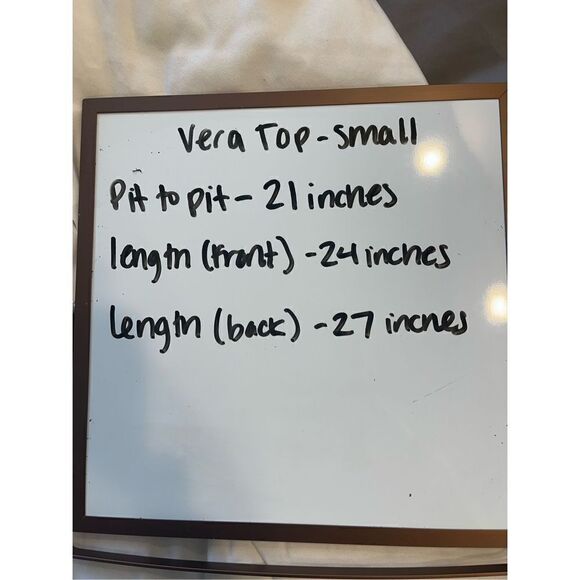 Vera Top - small
Pit to pit - 21 inches
length (front) - 24 inches
Length (back) - 27 inches